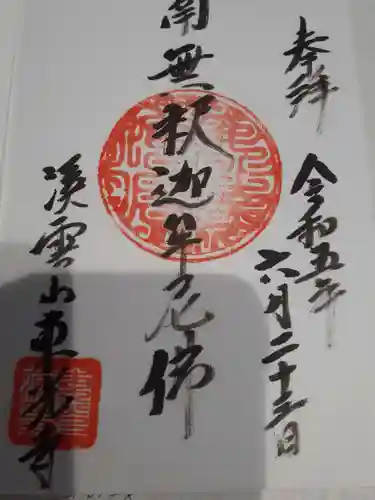 奉拝
令和五年
六月二十三日
南無釈迦牟尼佛
渓雲山東光寺